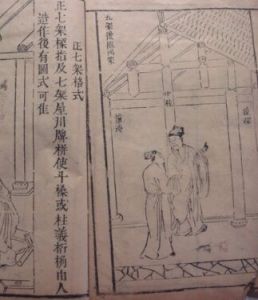 正七架格式
正七架樑指及七架屋川牌栟使斗槧或柱義桁栟由人
造作後有圖式可佳
中柱